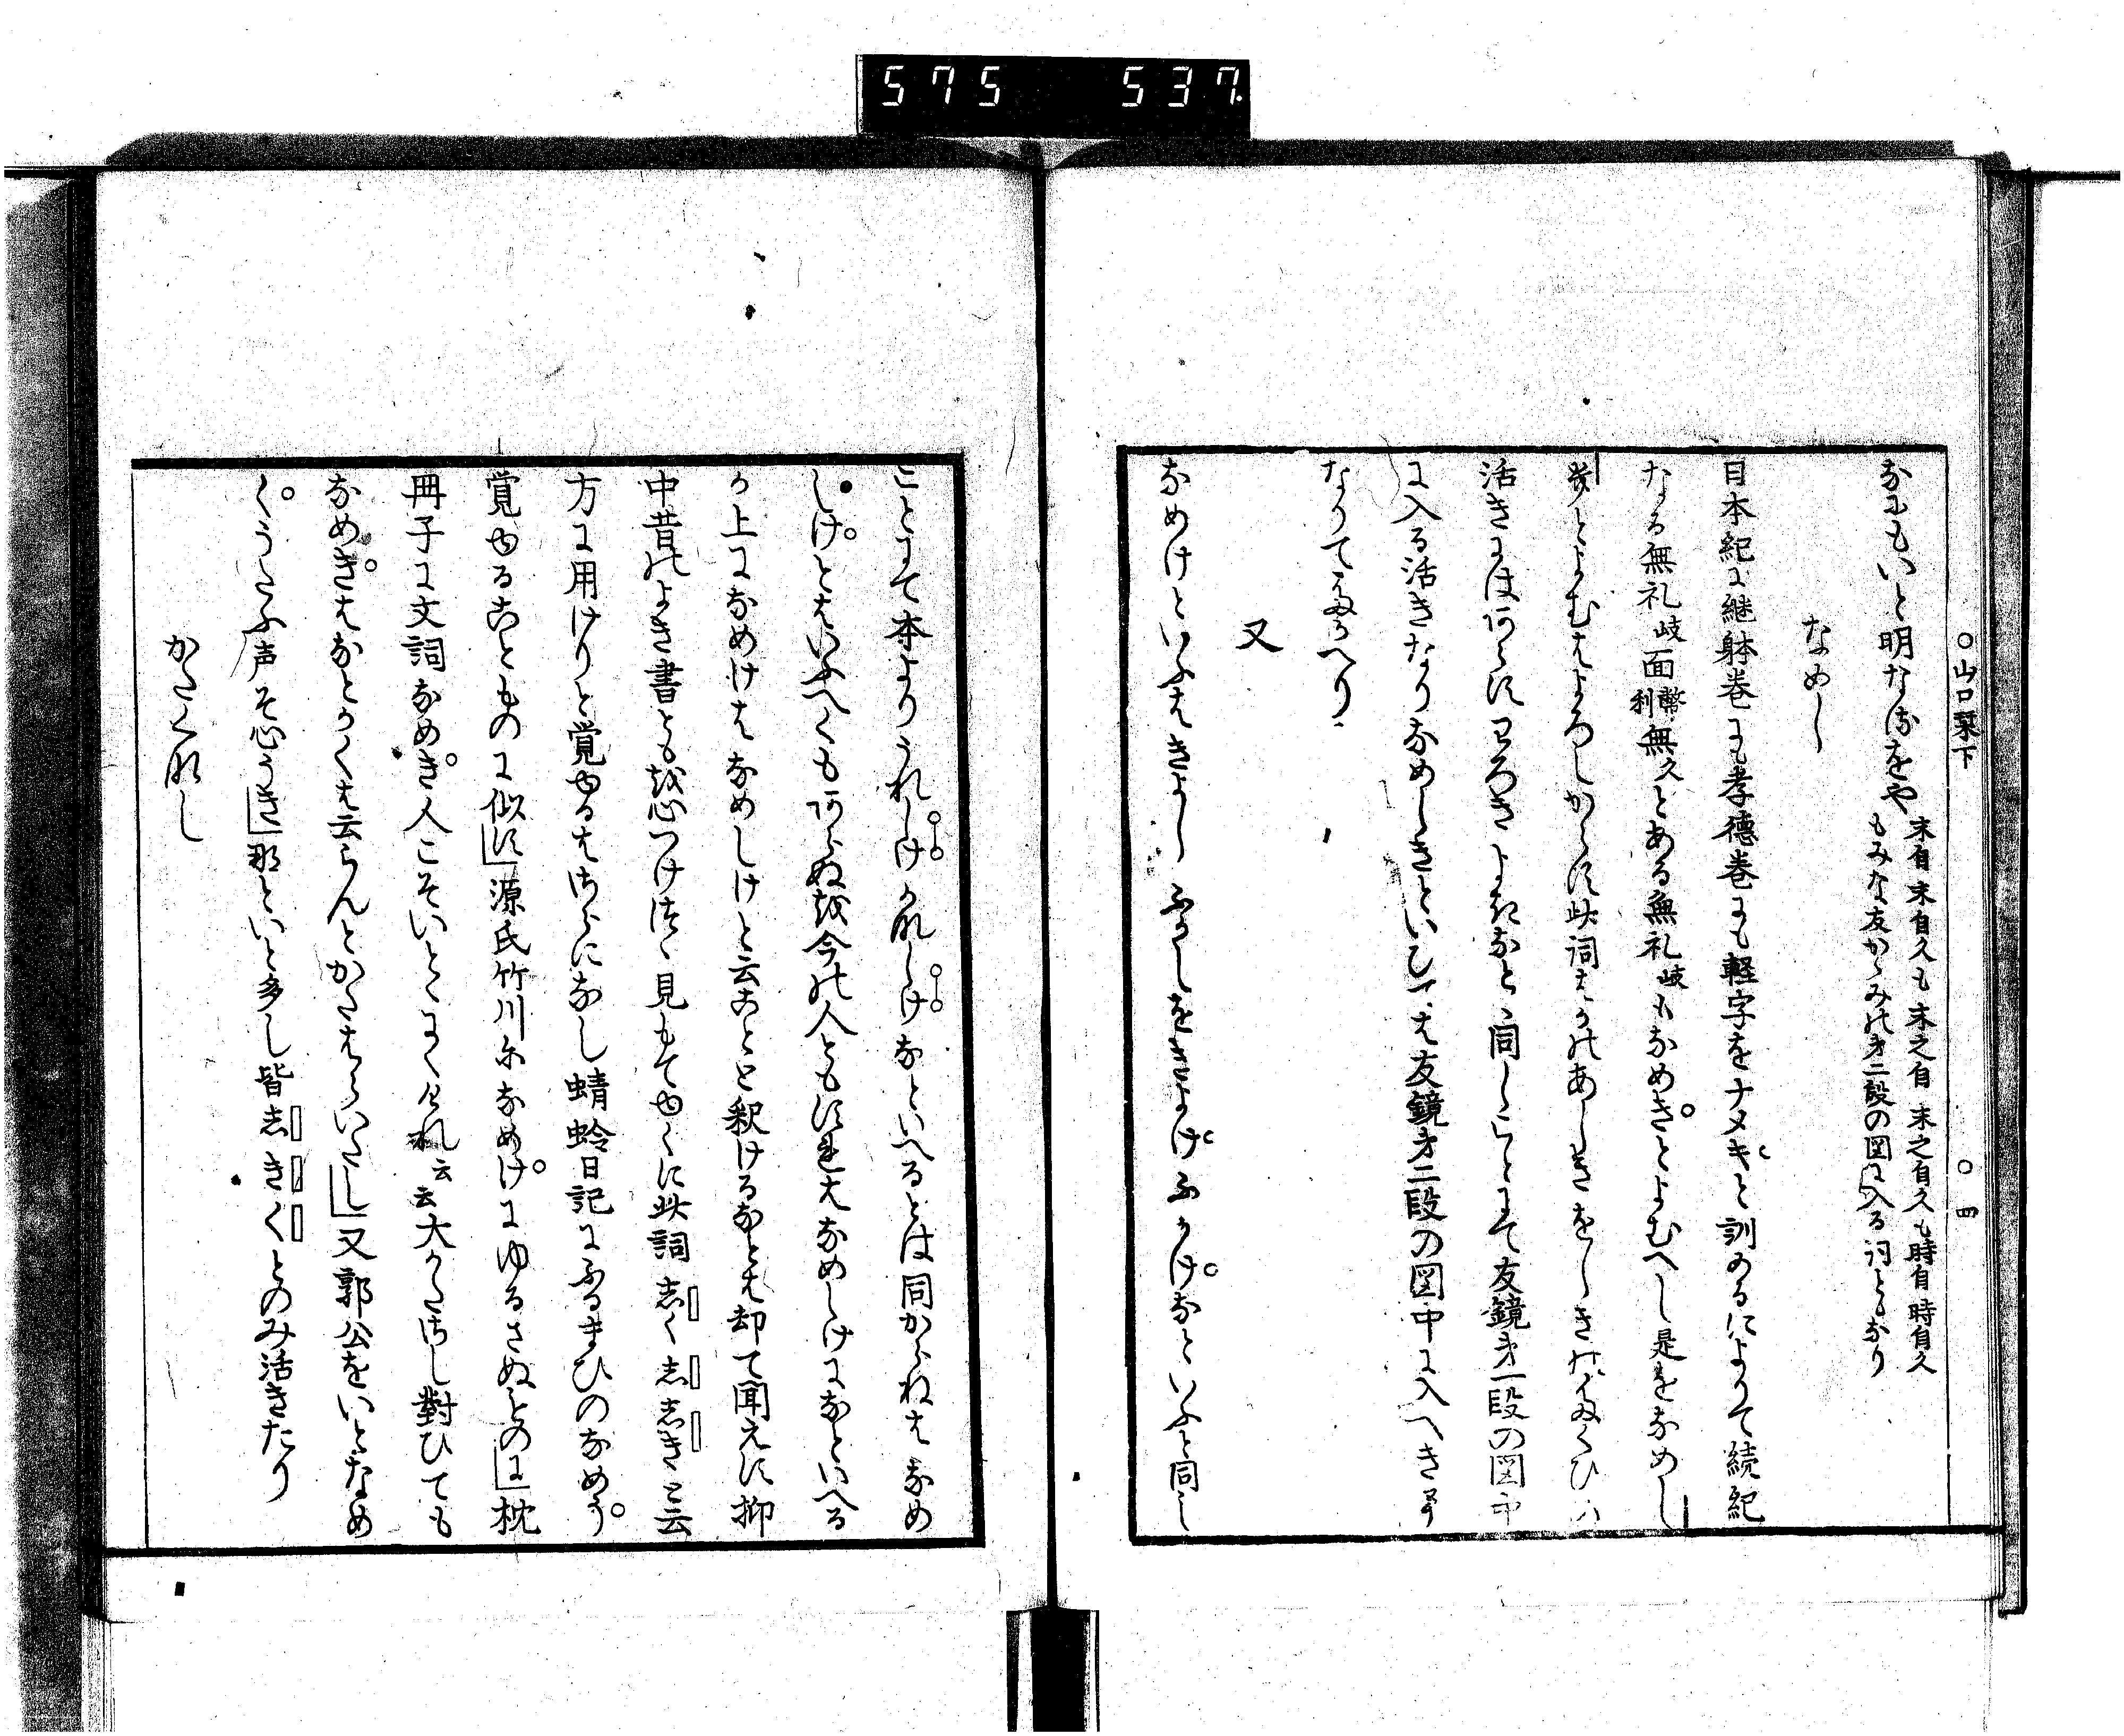 575 537.
○山口栞下 ○四
なにもいと明なるをや
末自末自久も末之自末之自久も時自時自久
もみな友かゝみの才二段の図に入る詞ともなり
なめし
日本紀に継躰巻にも孝徳巻にも軽字をナメキと訓めるによりて続紀
なる無礼岐面幣利無久とある無礼岐もなめきとよむへし是をなめし
とよむはよろしからす此詞はかのあしきをしきのたくひハ
活きにはあらすわろきよきなとゝ同しことにて友鏡才一段の図中
に入る活きなりなめしきといひては友鏡才二段の図中に入へき
なりてたかへり
又
なめけといふはきよしふかしをきよけふかけなといふと同し
ことにて本よりうれしけかなしけなといへるとは同からねはなめ
しけとはいふへくもあらぬを今の人ともすれはなめしけになといへる
か上になめけはなめしけと云ことと釈けるなとは却て聞えす抑
中昔のよき書とも心つけつゝ見もてゆくに此詞志く志志きと云
方に用けりと覚ゆるはさらになし蜻蛉日記にふるまひのなめう
覚ゆることものに似す」源氏竹川になめけにゆるさぬものに」枕
冊子に文詞なめき人こそいとゝにくけれ云云大かたさし對ひても
なめきはなとかく云らんとかたはらいたし」又郭公をいとなめ
くうたふ声そ心うき」那といと多し皆志きくとのみ活きたり
かたくなし